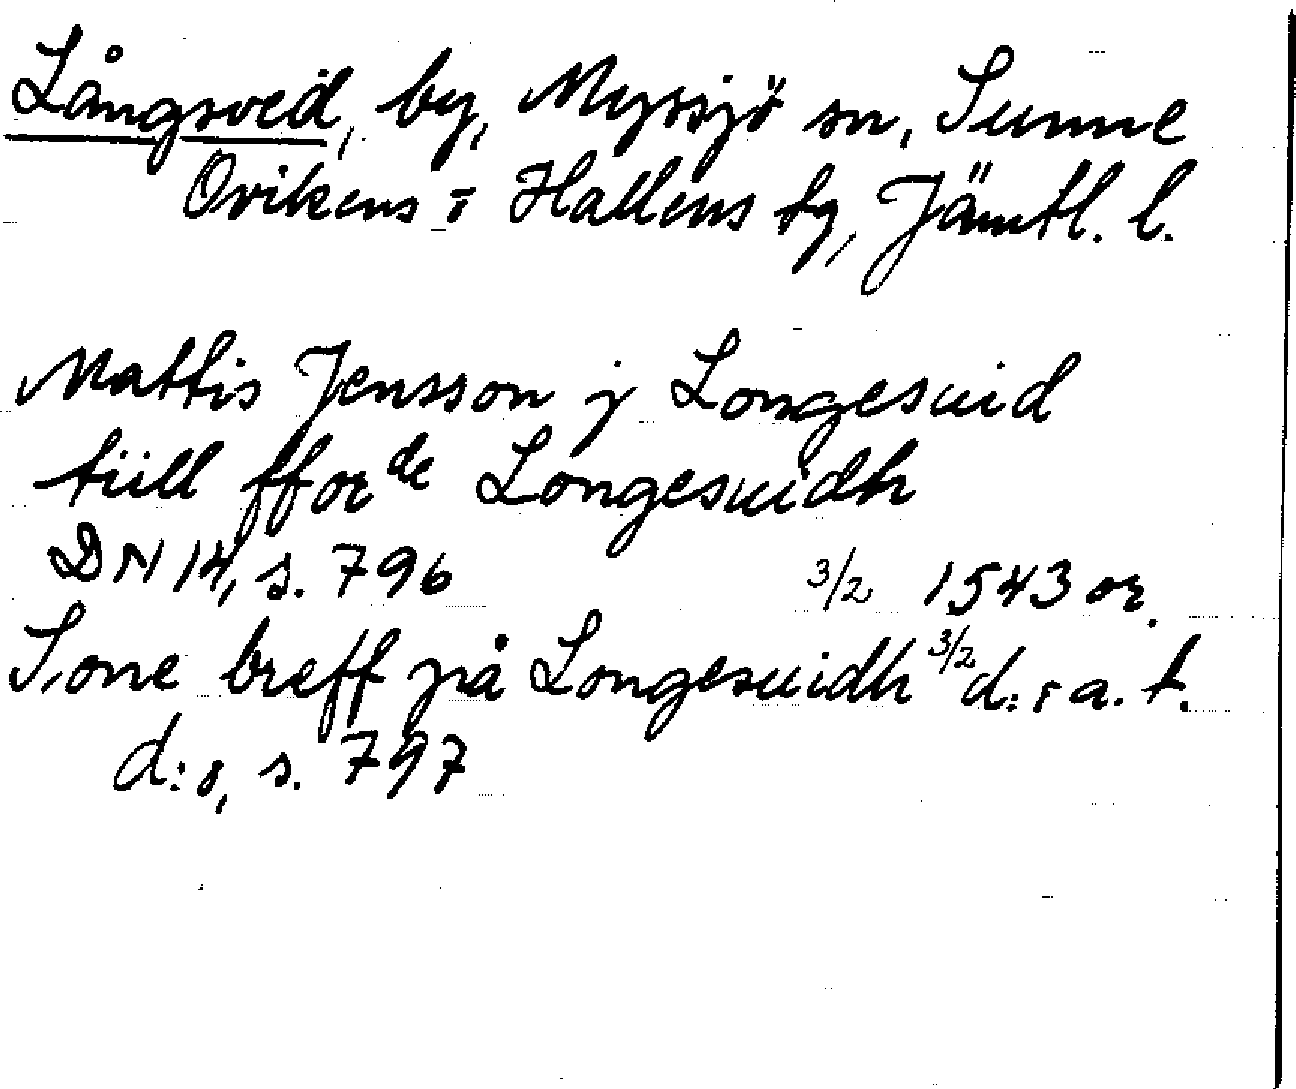 Långsved, by, Myssjö sn, Sunne
Ovikens o Hallens tg, Jämtl. l.
Mattis Jensson j Longesuid
tiill fforde Longesuidh
DN 14, s. 796 3/2 1543 or.
Sone breff på Longesuidh 3/2 d:o a. t.
d:o, s. 797